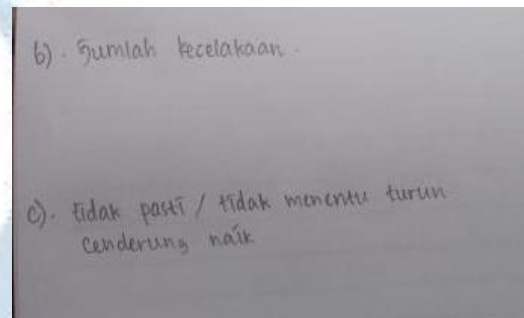 b). Jumlah kecelakaan.
c). tidak pasti / tidak menentu turun
cenderung naik